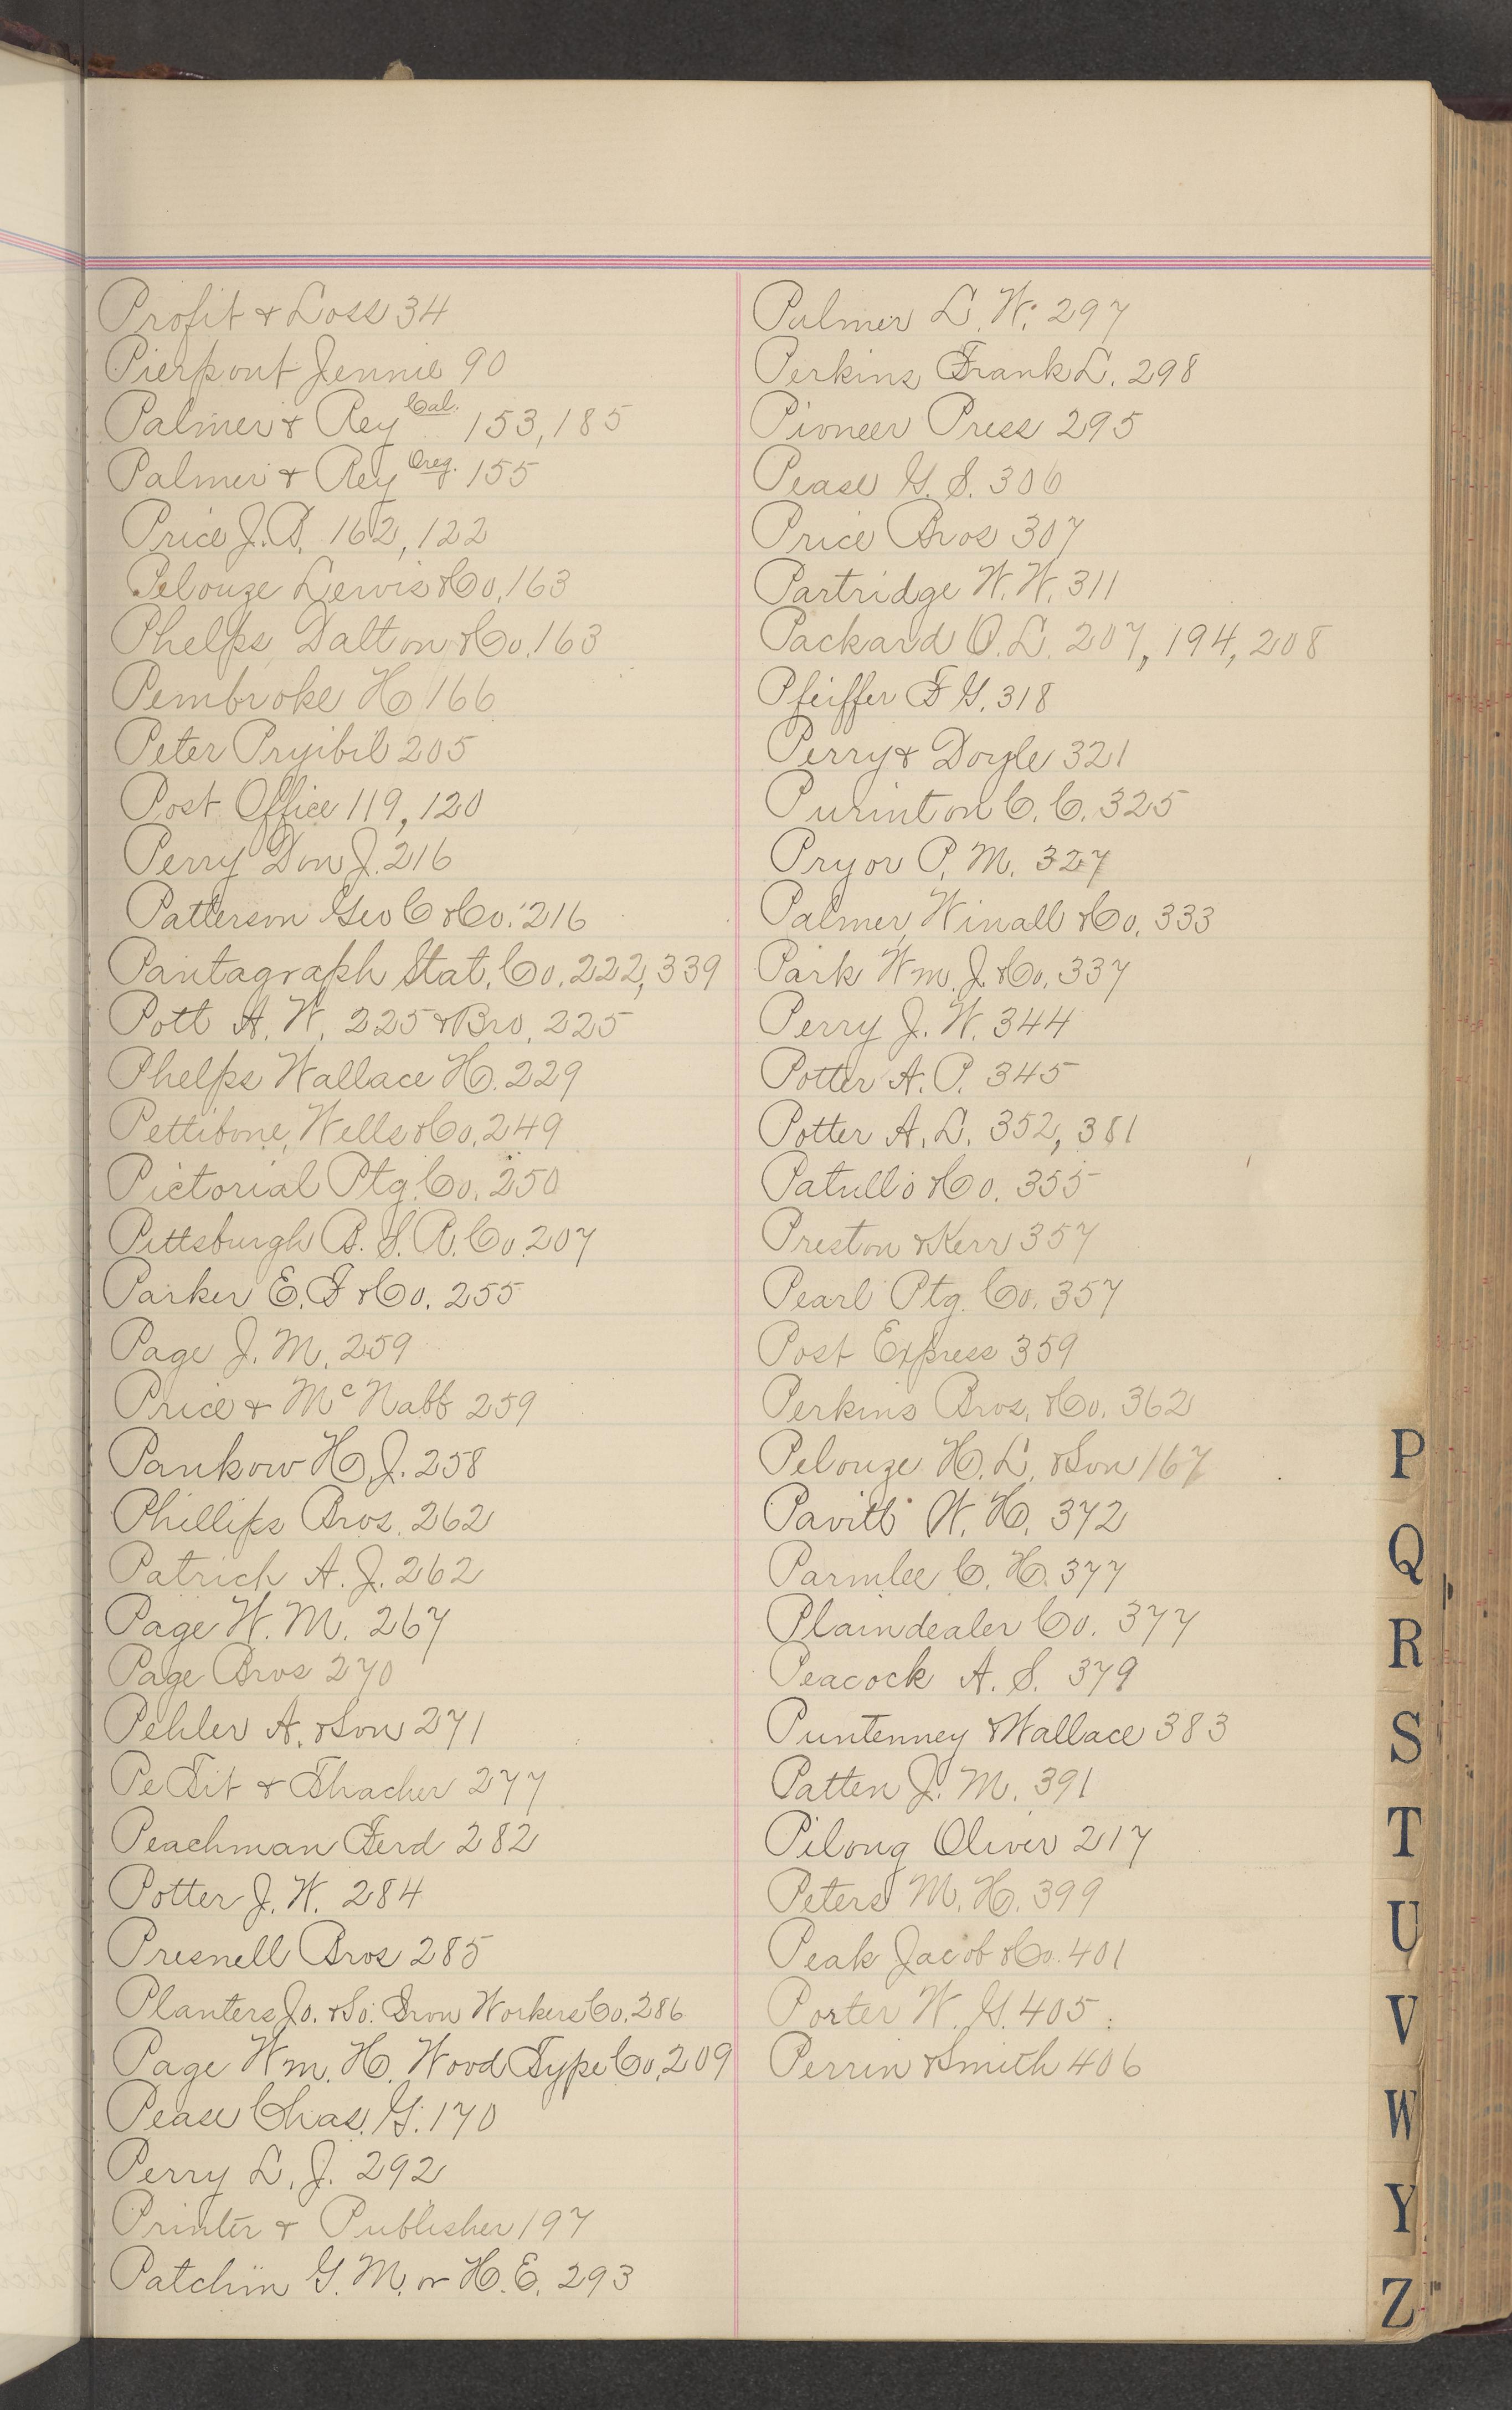 Profit & Loss 34
Pierpont Jennie 90
Palmer & Rey Cal. 153, 185
Palmer & Rey Oreg. 155
Price J. B. 162, 122
Pelouze Lewis & Co, 163
Phelps, Dalton & Co. 163
Pembroke H 166
Peter Pryibil 205
Post Office 119, 120
Perry Don J. 216
Patterson Geo C & Co. 216
Pantagraph Stat. Co. 222, 339
Pott A. W. 225 & Bro. 225
Phelps Wallace H. 229
Pettibone, Wells & Co. 249
Pictorial Ptg. Co. 250
Pittsburgh B. S. R. Co. 207
Parker E. F & Co. 255
Page J. M. 259
Price & McNabb 259
Pankow H. J. 258
Phillips Bros. 262
Patrich A. J. 262
Page W. M. 267
Page Bros 270
Pehler A. & Son 271
PeTit & Thacher 277
Peachman Ferd 282
Potter J. W. 284
Presnell Bros 285
Planters Jo. & So. Iron Workers Co. 286
Page Wm. H. Wood Type Co, 209
Pease Chas. G. 170
Perry L. J. 292
Printer & Publisher 197
Patchin G. M. or H. E. 293
Palmer L. W. 297
Perkins Frank L. 298
Pioneer Press 295
Pease G. S. 306
Price Bros 307
Partridge W. W. 311
Packard O. L. 207, 194, 208
Pfeiffer F G. 318
Perry & Doyle 321
Purinton C. C. 325
Pryor P. M. 327
Palmer, Winall & Co. 333
Park Wm. J. & Co. 337
Perry J. W. 344
Potter A. P. 345
Potter A. L. 352, 381
Patullo & Co. 355
Preston & Kerr 357
Pearl Ptg. Co. 357
Post Express 359
Perkins Bros. & Co. 362
Pelouze H. L. & Son 167
Pavitt W. H. 372
Parmlee C. H. 377
Plaindealer Co. 377
Peacock A. S. 379
Puntenney & Wallace 383
Patten J. M. 391
Pilong Oliver 217
Peters M. H. 399
Peak Jacob & Co. 401
Porter W. G. 405
Perrin & Smith 406
P
Q
R
S
T
U
V
W
Y
Z